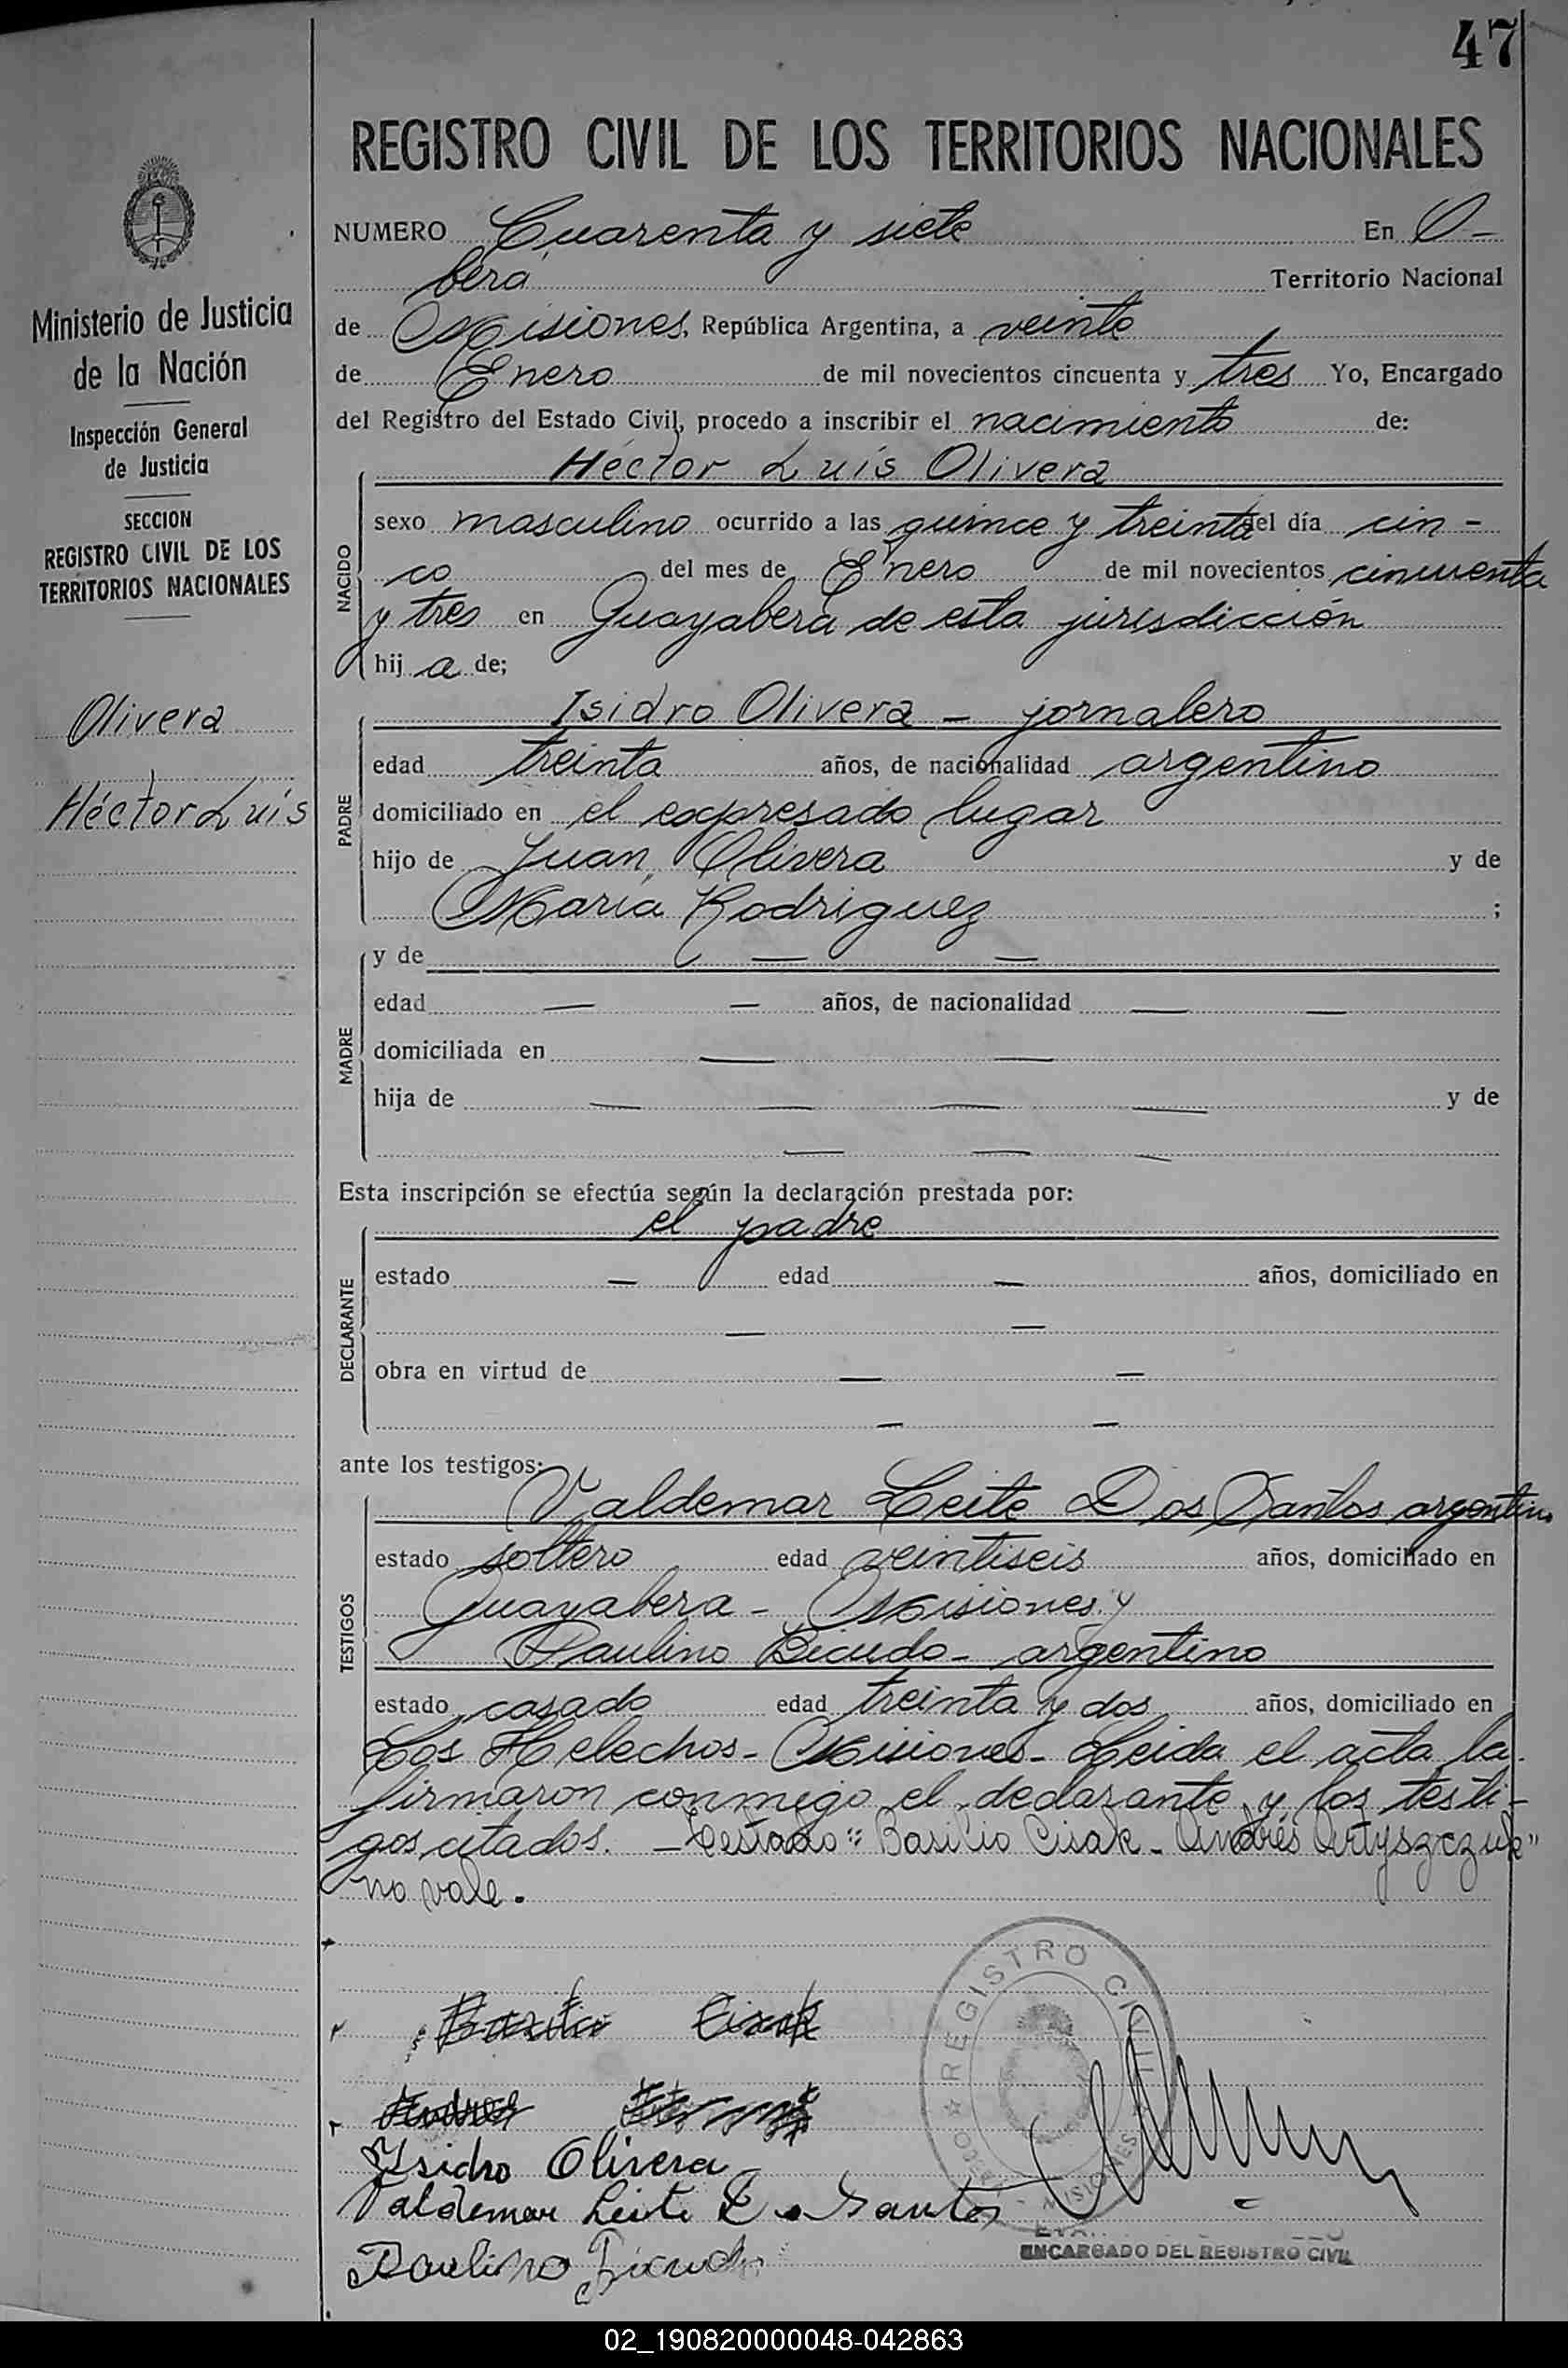 47
REGISTRO CIVIL DE LOS TERRITORIOS NACIONALES
Ministerio de Justicia
de la Nación
Inspección General
de Justicia
SECCION
REGISTRO CIVIL DE LOS
TERRITORIOS NACIONALES
Olivera
Héctor Luis
NUMERO Cuarenta y siete En O-
berá Territorio Nacional
de Misiones, República Argentina, a veinte
de Enero de mil novecientos cincuenta y tres Yo, Encargado
del Registro del Estado Civil, procedo a inscribir el nacimiento de:
Héctor Luis Olivera
NACIDO
sexo masculino ocurrido a las quince y treinta del día cin-
co del mes de Enero de mil novecientos cincuenta
y tres en Guayabera de esta jurisdicción
hij a de;
Isidro Olivera - jornalero
PADRE
edad treinta años, de nacionalidad argentino
domiciliado en el expresado lugar
hijo de Juan Olivera y de
María Rodriguez ;
MADRE
y de — —
edad — — años, de nacionalidad — —
domiciliada en — —
hija de — — — — y de
— — —
Esta inscripción se efectúa según la declaración prestada por:
el padre
DECLARANTE
estado — edad — años, domiciliado en
— —
obra en virtud de — —
— —
ante los testigos:
Valdemar Leite Dos Santos argentino
TESTIGOS
estado soltero edad veintiseis años, domiciliado en
Guayabera - Misiones y
Paulino Bicudo - argentino
estado casado edad treinta y dos años, domiciliado en
Los Helechos - Misiones - Leida el acta la
firmaron conmigo el declarante y los testi-
gos citados. - Testado: "Basilio Cisak - Andrés Artyszczuk"
no vale.
Basilio Cisak
Andres
Isidro Olivera
Valdemar Leite D. Santos
Paulino Bicudo
REGISTRO CIVIL
MISIONES
ENCARGADO DEL REGISTRO CIVIL
02_190820000048-042863